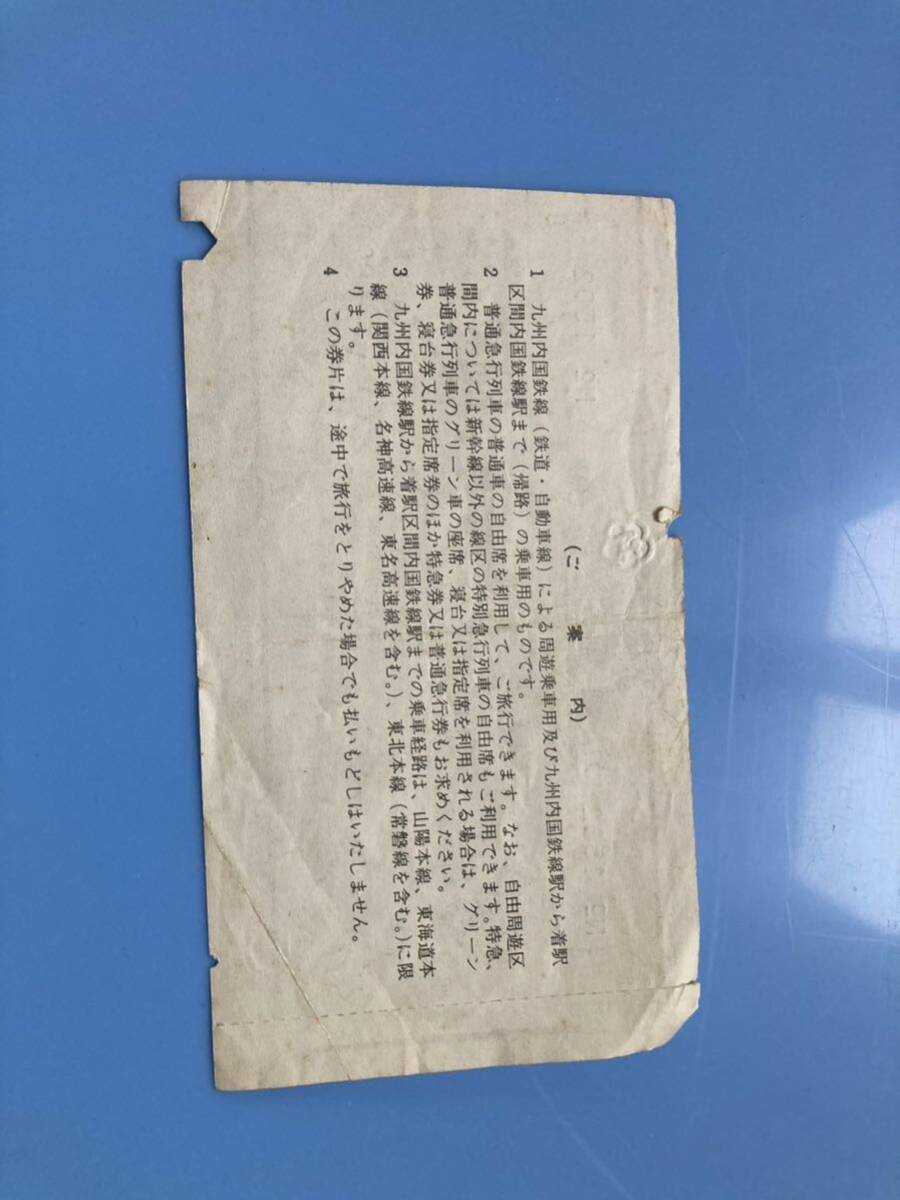 （ご案内）
1　九州内国鉄線（鉄道・自動車線）による周遊乗車用及び九州内国鉄線駅から着駅
区間内国鉄線駅まで（帰路）の乗車用のものです。
2　普通急行列車の普通車の自由席を利用して、ご旅行できます。なお、自由周遊区
間内については新幹線以外の線区の特別急行列車の自由席もご利用できます。特急、
普通急行列車のグリーン車の座席、寝台又は指定席を利用される場合は、グリーン
券、寝台券又は指定席券のほか特急券又は普通急行券もお求めください。
3　九州内国鉄線駅から着駅区間内国鉄線駅までの乗車経路は、山陽本線、東海道本
線（関西本線、名神高速線、東名高速線を含む。）、東北本線（常磐線を含む。）に限
ります。
4　この券片は、途中で旅行をとりやめた場合でも払いもどしはいたしません。